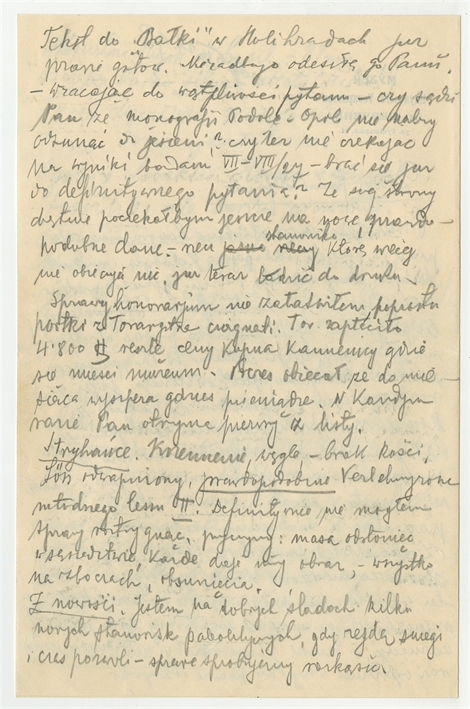 Tekst do "Batki" w Holihradach już
prawie gotów. Niezadługo odeszlę go Panu.
— wracając do wątpliwości pytam — czy sądzi
Pan że monografji Podole - Opole nie należy
odsunąć do jesieni? czy też nie czekając
na wyniki badań VII-VIII/27 — brać się już
do definitywnego pytania? Ze swej strony
chętnie poczekałbym jeszcze na nowe prawdo-
podobne dane. — stanowiska które więcej
nie obiecują nic, już teraz do druku.
Sprawy honorarjum nie załatwiłem poprostu
pustki z Towarzystwa Tow. zapłaciło
4.800 resztę ceny kupna kamienicy gdzie
się mieści muzeum. Prezes obiecał że do mie-
siąca gdzieś pieniądze. W każdym
razie Pan otrzyma pierwszy z listy.
Stryhańce. Krzemienie, węgle — brak kości,
löss odwapniony, prawdopodobnie
młodszego lessu II. Definitywnie nie mogłem
sprawy rozstrzygnąć, przyczyny: masa odsłonięć
w sąsiedztwie każde daje inny obraz, — wszystko
na zboczach, obsunięcia.
Z nowości. Jestem na dobrych śladach kilku
nowych stanowisk paleolitycznych, gdy zejdą śniegi
i czas pozwoli — sprawę spróbujemy